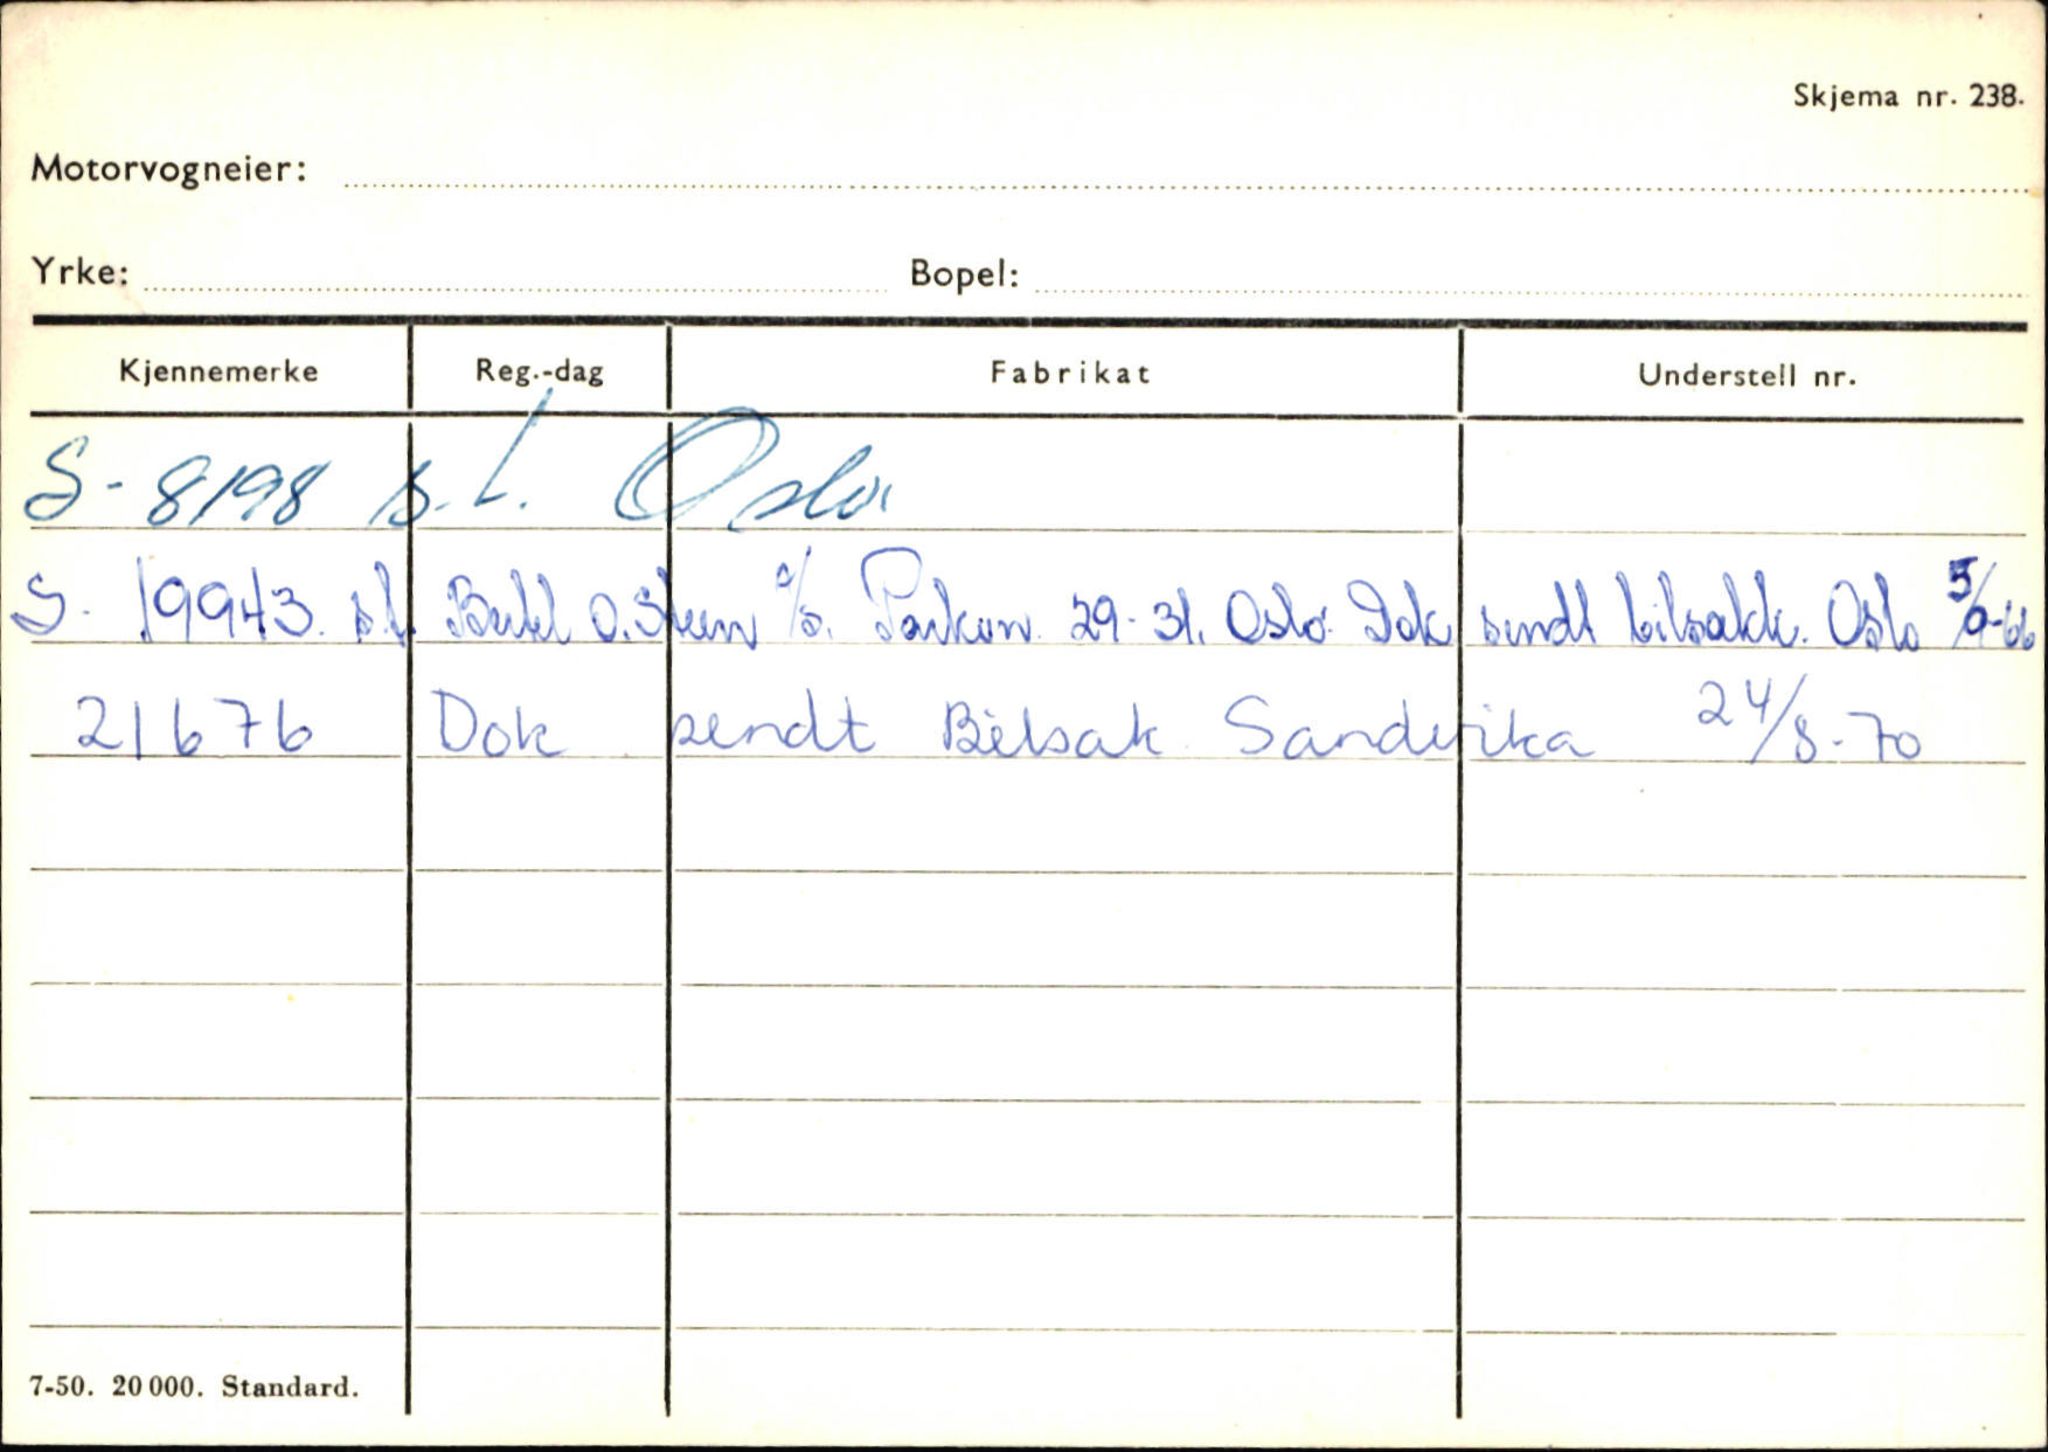 Skjema nr. 238.
Motorvogneier:
Yrke: Bopel:
Kjennemerke Reg.-dag Fabrikat Understell nr.
S- 8198 s.l. Oslo
S. 19943. s.l. Bertel O. Steen a/s. Parkvn. 29-31. Oslo. Dok sendt bilsakk. Oslo 5/9-66
21676 Dok sendt Bilsak. Sandvika 24/8-70
7-50. 20 000. Standard.